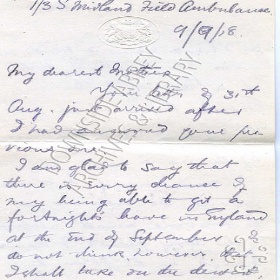 1/3 S Midland Field Ambulance
9/9/18.
My dearest Mother,
Your letter of 31st
Aug. just arrived after
I had answered your pre
vious one.
I and glad to say that
there is every chance of
my being able to get a
fortnight's leave in England
at the end of September. I
do not think, however, that
I shall take on the
DOWNSIDE ABBEY
ARCHIVES & LIBRARY